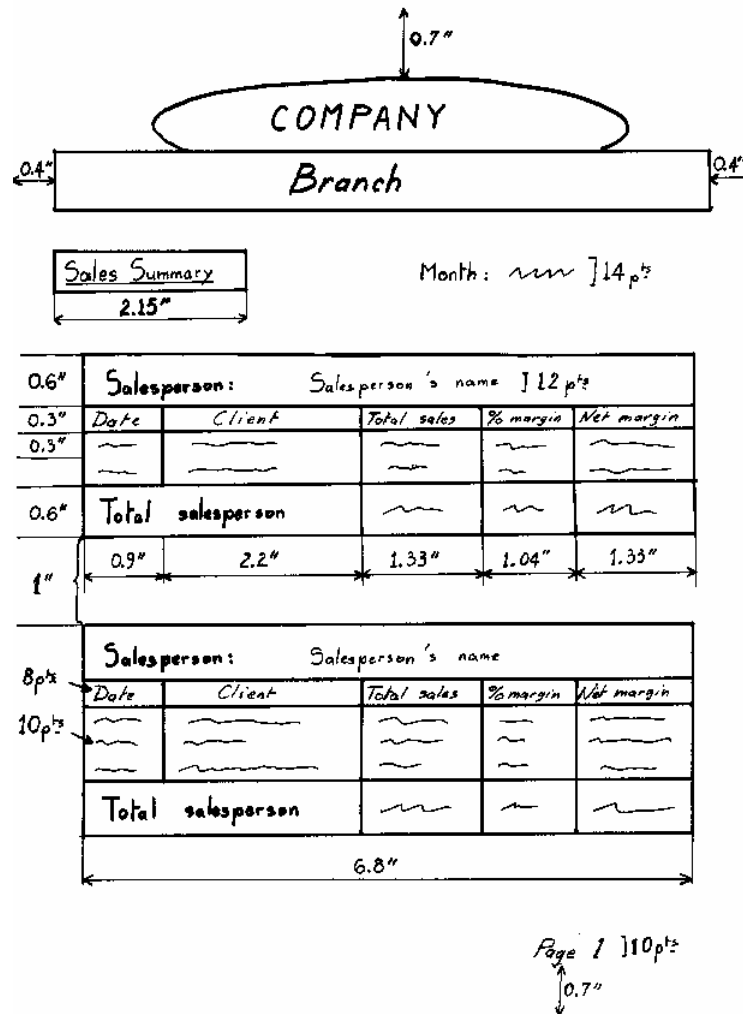 0.7"
COMPANY
0.4" Branch 0.4"
Sales Summary Month: ]14 pts
2.15"
0.6" Salesperson: Salesperson's name ]12 pts
0.3" Date Client Total sales % margin Net margin
0.3"
0.6" Total salesperson
0.9" 2.2" 1.33" 1.04" 1.33"
1"
Salesperson: Salesperson's name
8pts Date Client Total sales % margin Net margin
10pts
Total salesperson
6.8"
Page 1 ]10pts
0.7"